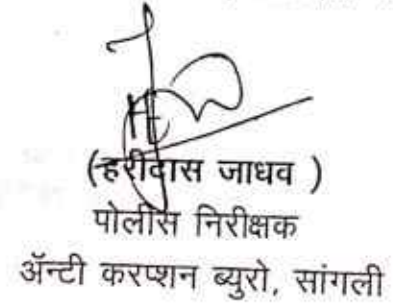 (हरीदास जाधव )
पोलीस निरीक्षक
ॲन्टी करप्शन ब्युरो, सांगली